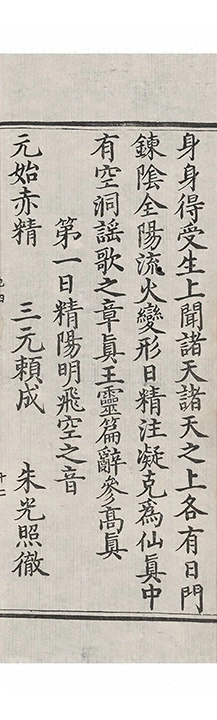 身身得受生上聞諸天諸天之上各有日門
鍊陰全陽流火變形日精注凝克為仙真中
有空洞謡歌之章真王靈篇辭參高真
第一日精陽明飛空之音
元始赤精　三元賴成　朱光照徹